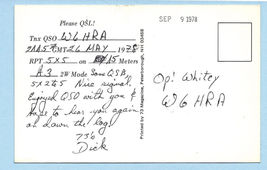 Please QSL!
Tnx QSO W6HRA
2145 GMT 26 MAY 1978
RPT 5x5 on 15 Meters
A3 2# Mode Some QSB
5x2x5 Nice signal.
Enjoyed QSO with you &
Hope to hear you again
on down the log!
73's
Dick
SEP 9 1978
Op! Whitey
W6HRA
Printed by 73 Magazine, Peterborough, NH 03458